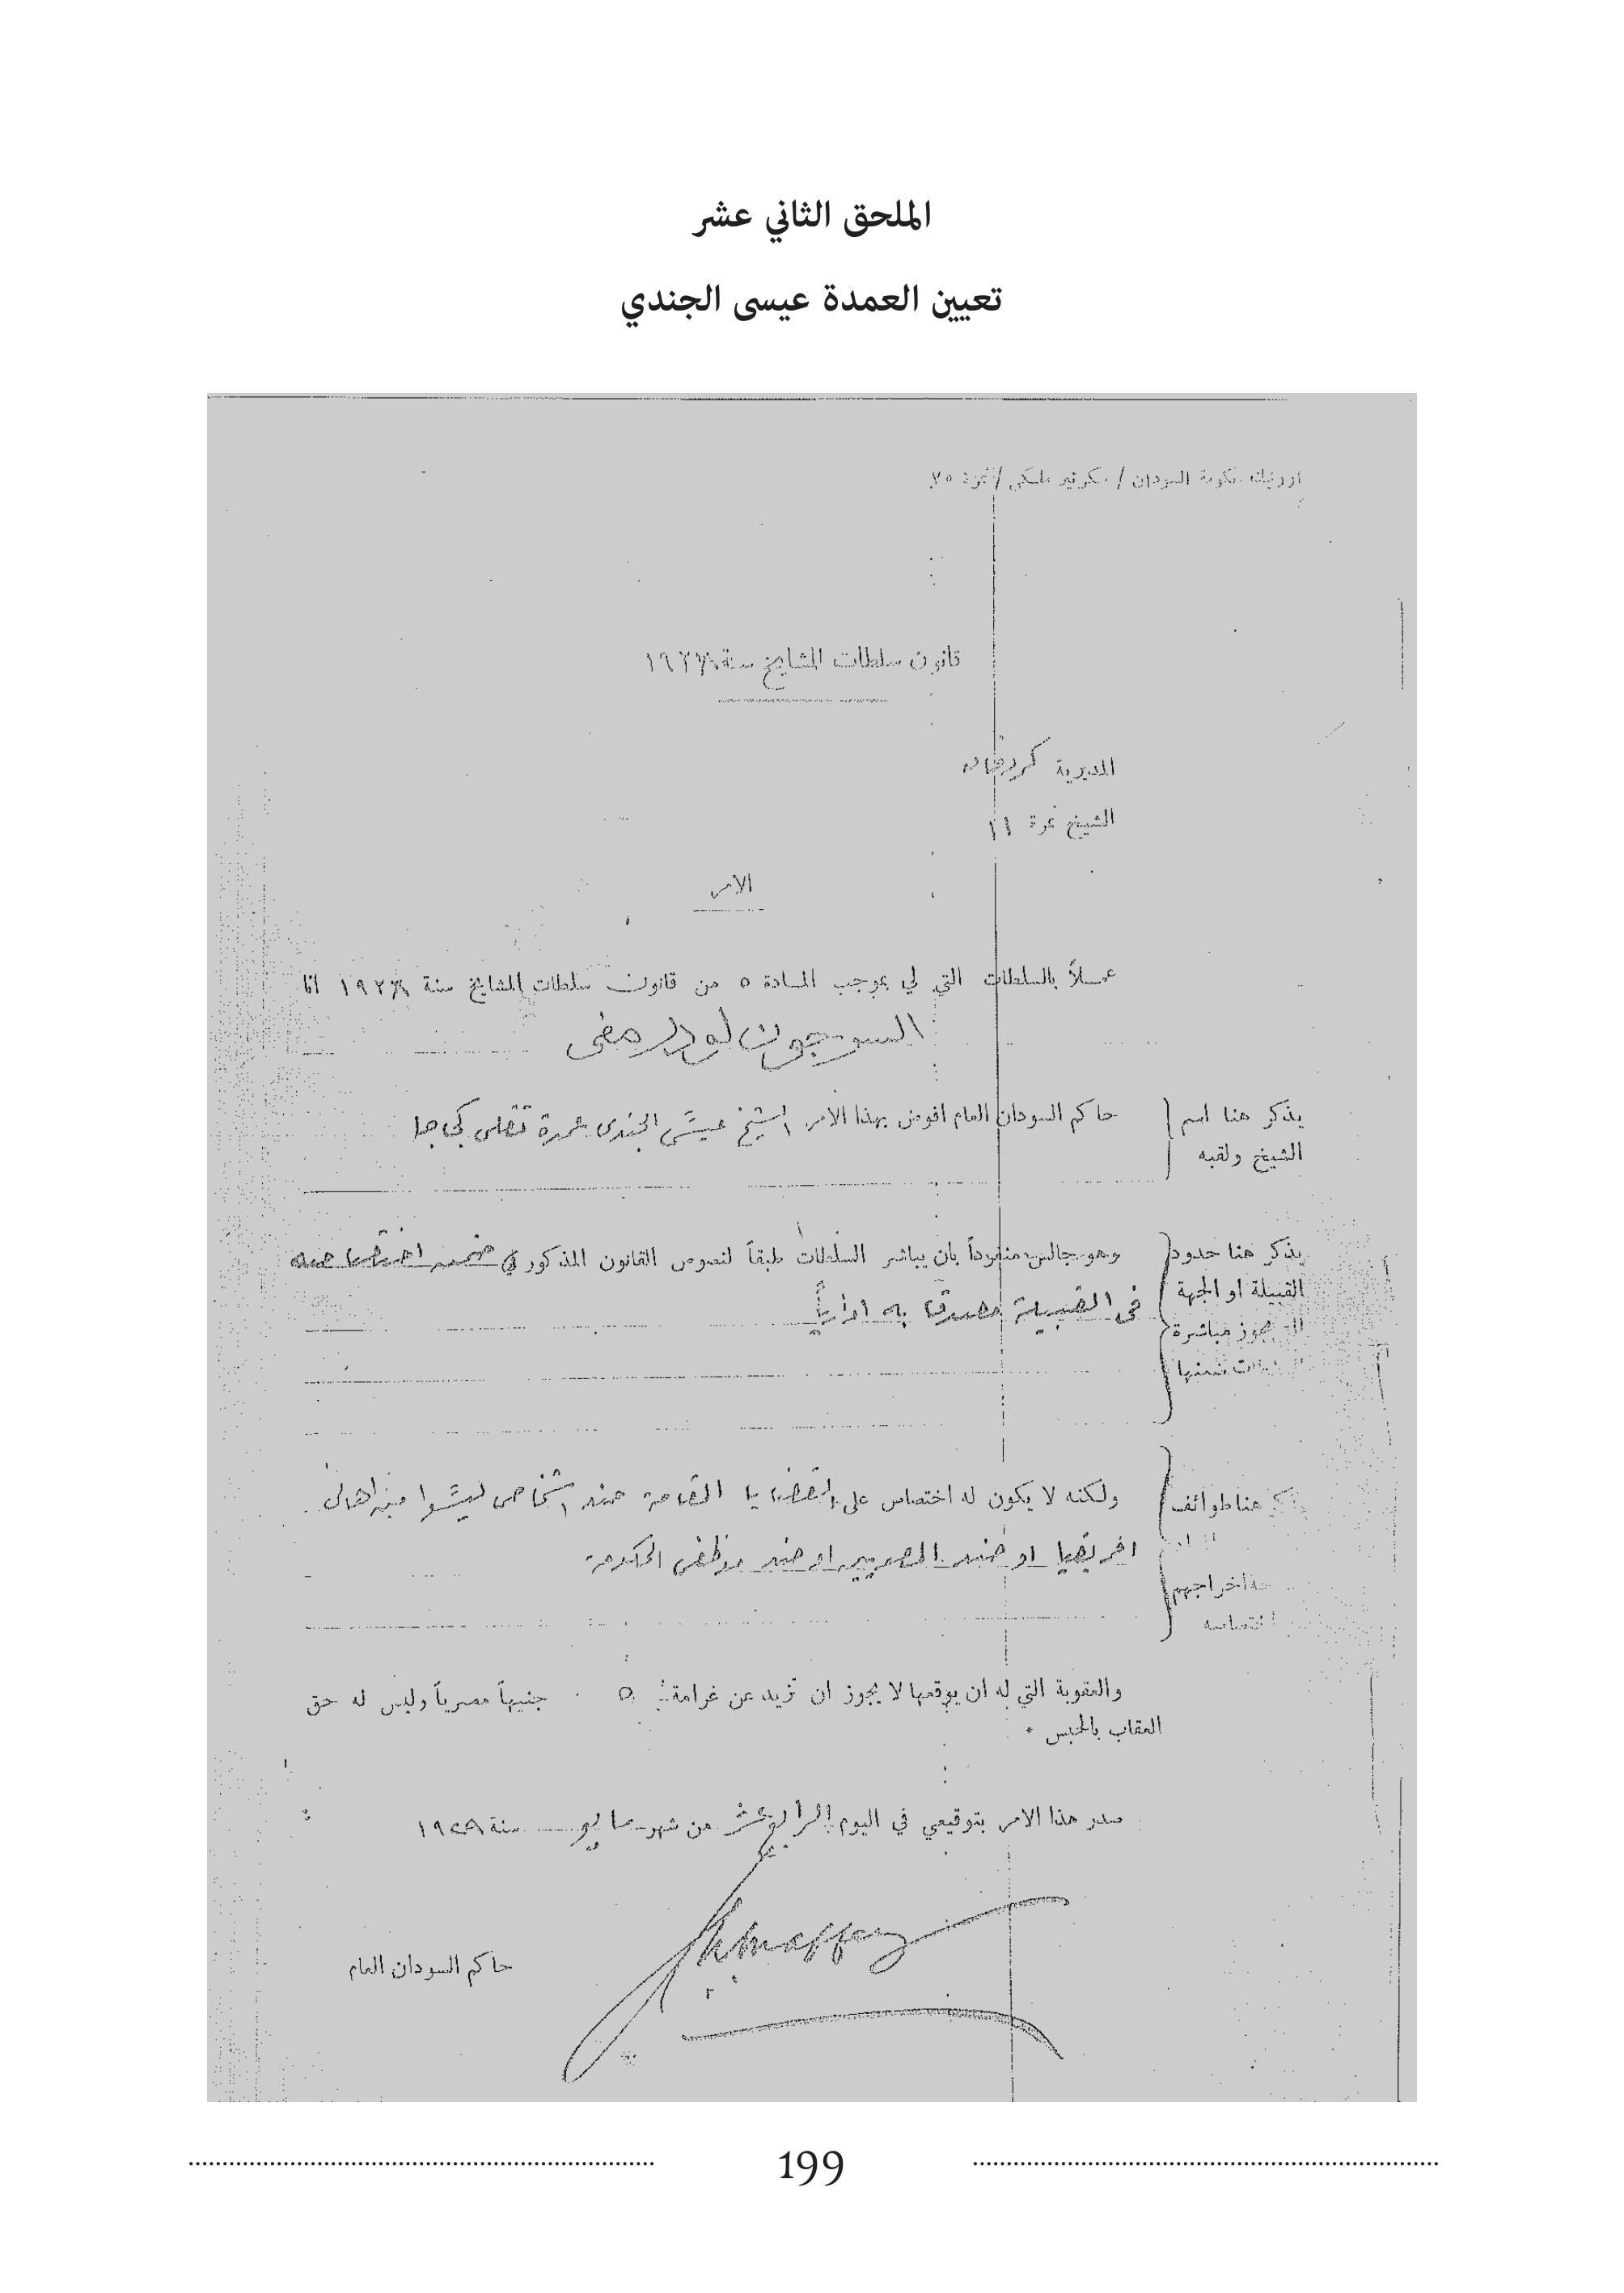 الملحق الثاني عشر
تعيين العمدة عيسى الجندي
حكومة السودان / سكرتير ملكي / نمرة ٧٥
قانون سلطات المشايخ سنة ١٩٢٨
المديرية كردفان
الشيخ نمرة ١١
الامر
عملاً بالسلطات التي لي بموجب المادة ٥ من قانون سلطات المشايخ سنة ١٩٢٨ انا
السير جون لودر مفى
يذكر هنا اسم
الشيخ ولقبه
حاكم السودان العام افوض بهذا الامر الشيخ عيسى الجندى عمدة تقلى كجاجا
يذكر هنا حدود
القبيلة او الجهة
يجوز مباشرة
ضمنها
وهو جالس منفرداً بان يباشر السلطات طبقاً لنصوص القانون المذكور في ضمن اختصاصه
فى القبيلة مصدقا به ادارياً
هنا طوائف
اخراجهم
اختصاصه
ولكنه لا يكون له اختصاص على القضايا القامة ضد اشخاص ليسوا من اهالى
افريقيا او ضد المصريين او ضد موظفى الحكومة
والعقوبة التي له ان يوقعها لا يجوز ان تزيد عن غرامة ٥ جنيهاً مصرياً وليس له حق
العقاب بالحبس .
صدر هذا الامر بتوقيعي في اليوم الرابع عشر من شهر مايو سنة ١٩٢٨
Maffey
حاكم السودان العام
199